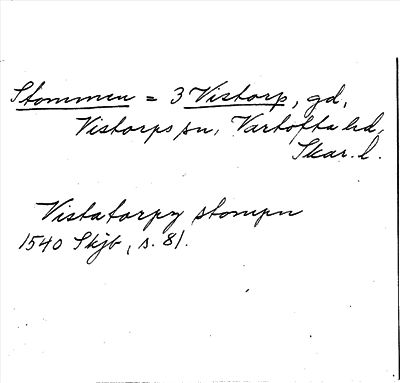 Stommen = 3 Vistorp, gd,
Vistorps sn, Vartofta hd,
Skar. l.
Vistatorpz stompn
1540 Skjb, s. 81.